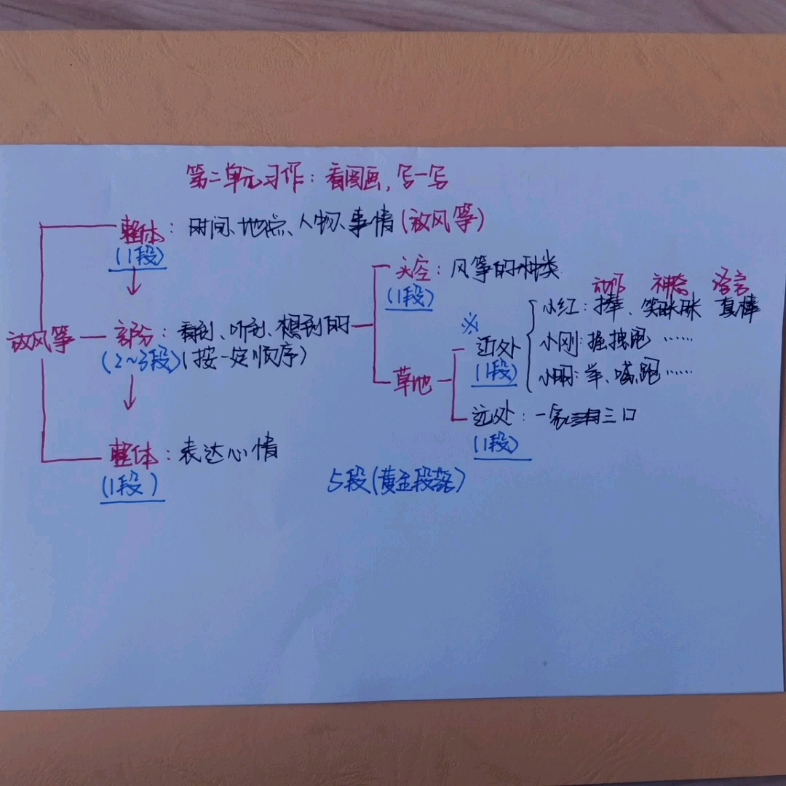 第二单元习作：看图画，写一写
整体：时间、地点、人物、事情（放风筝）
（1段）
天空：风筝的种类
（1段）
动作 神态 语言
小红：捧、笑眯眯 真棒
放风筝
部分：看到、听到、想到的
（2～3段）（按一定顺序）
※
近处
（1段）
小刚：拽跑……
草地
小丽：举、喊、跑……
远处：一家三口
（1段）
整体：表达心情
（1段）
5段（黄金段落）